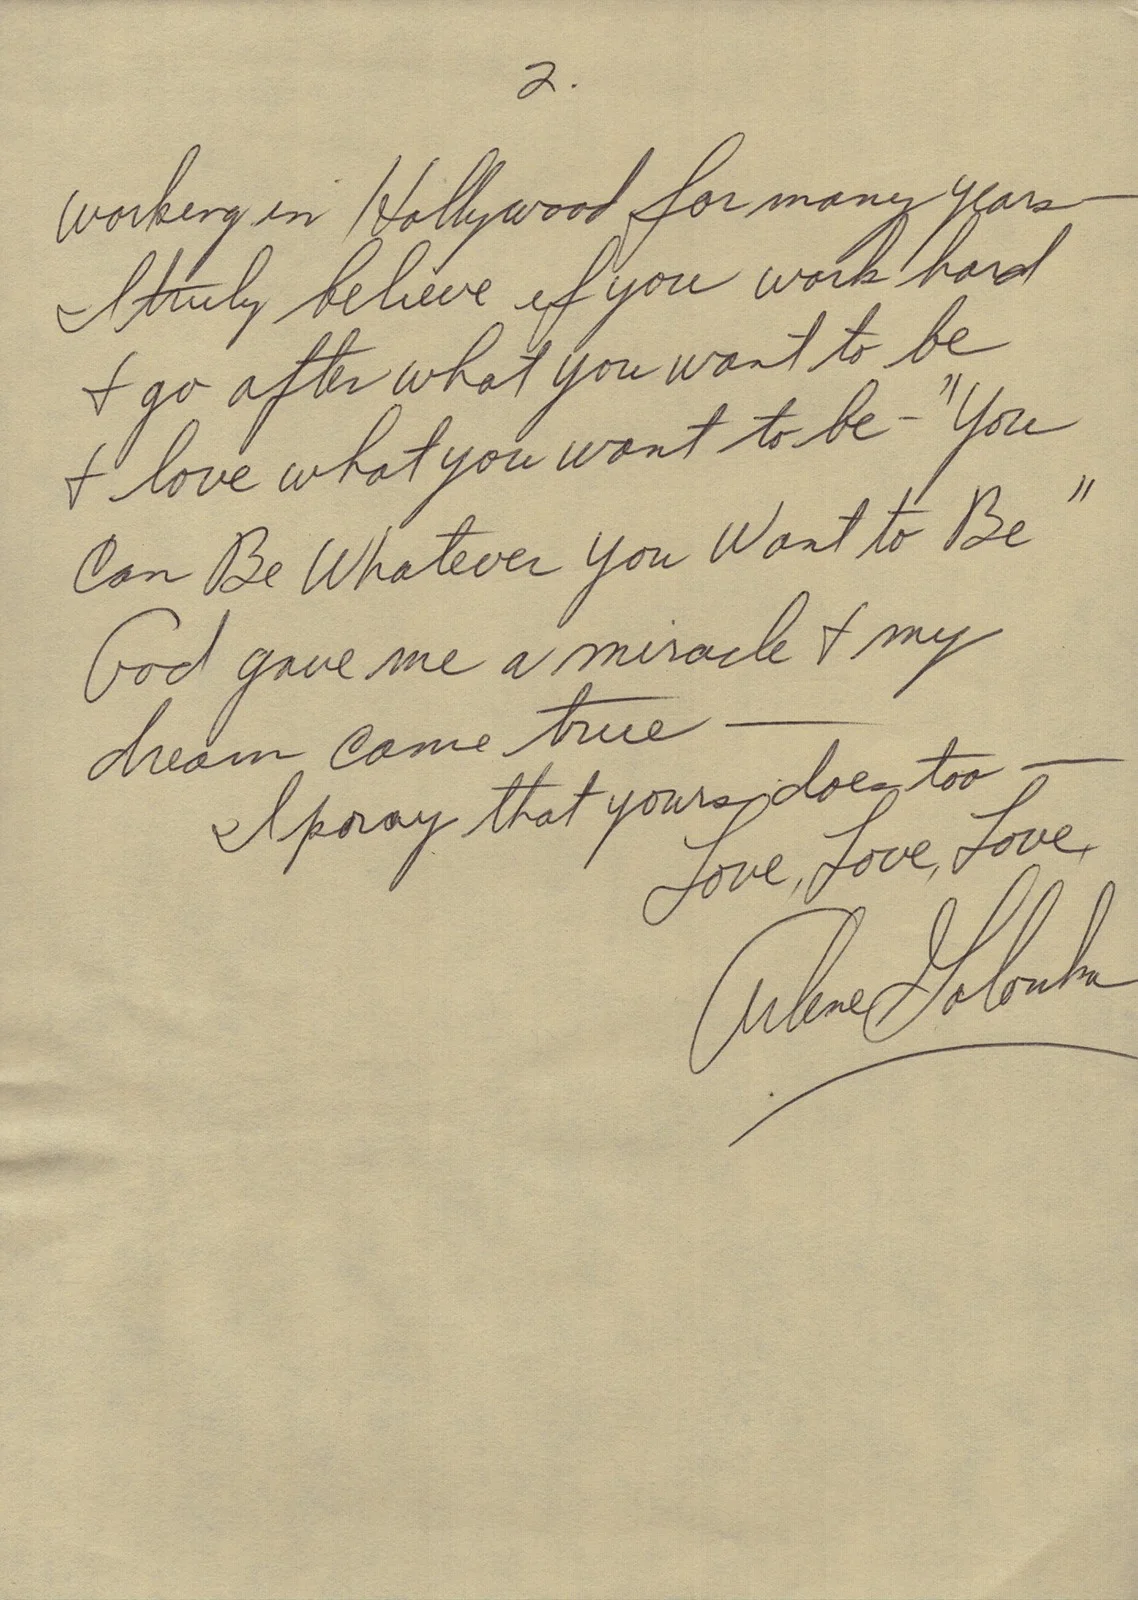 2.
working in Hollywood for many years —
I truly believe if you work hard
& go after what you want to be
& love what you want to be - "You
Can Be Whatever You Want to Be"
God gave me a miracle & my
dream came true —
I pray that yours does too —
Love, Love, Love,
Arlene Golonka